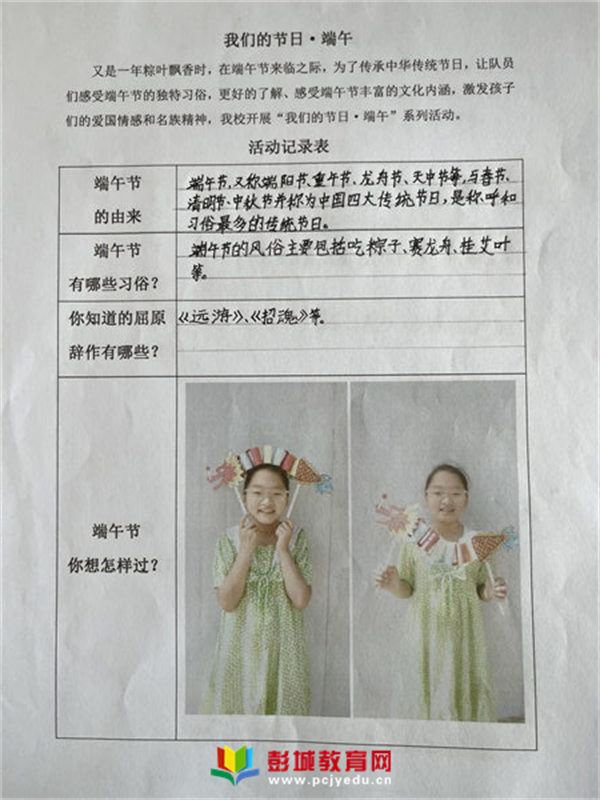 我们的节日·端午
又是一年粽叶飘香时，在端午节来临之际，为了传承中华传统节日，让队员
们感受端午节的独特习俗，更好的了解、感受端午节丰富的文化内涵，激发孩子
们的爱国情感和名族精神，我校开展“我们的节日·端午”系列活动。
活动记录表
端午节
的由来
端午节，又称端阳节、重午节、龙舟节、天中节等，与春节、
清明节、中秋节并称为中国四大传统节日，是称呼和
习俗最多的传统节日。
端午节
有哪些习俗？
端午节的风俗主要包括吃粽子、赛龙舟、挂艾叶
等。
你知道的屈原
辞作有哪些？
《远游》、《招魂》等。
端午节
你想怎样过？
彭城教育网
www.pcjyedu.cn